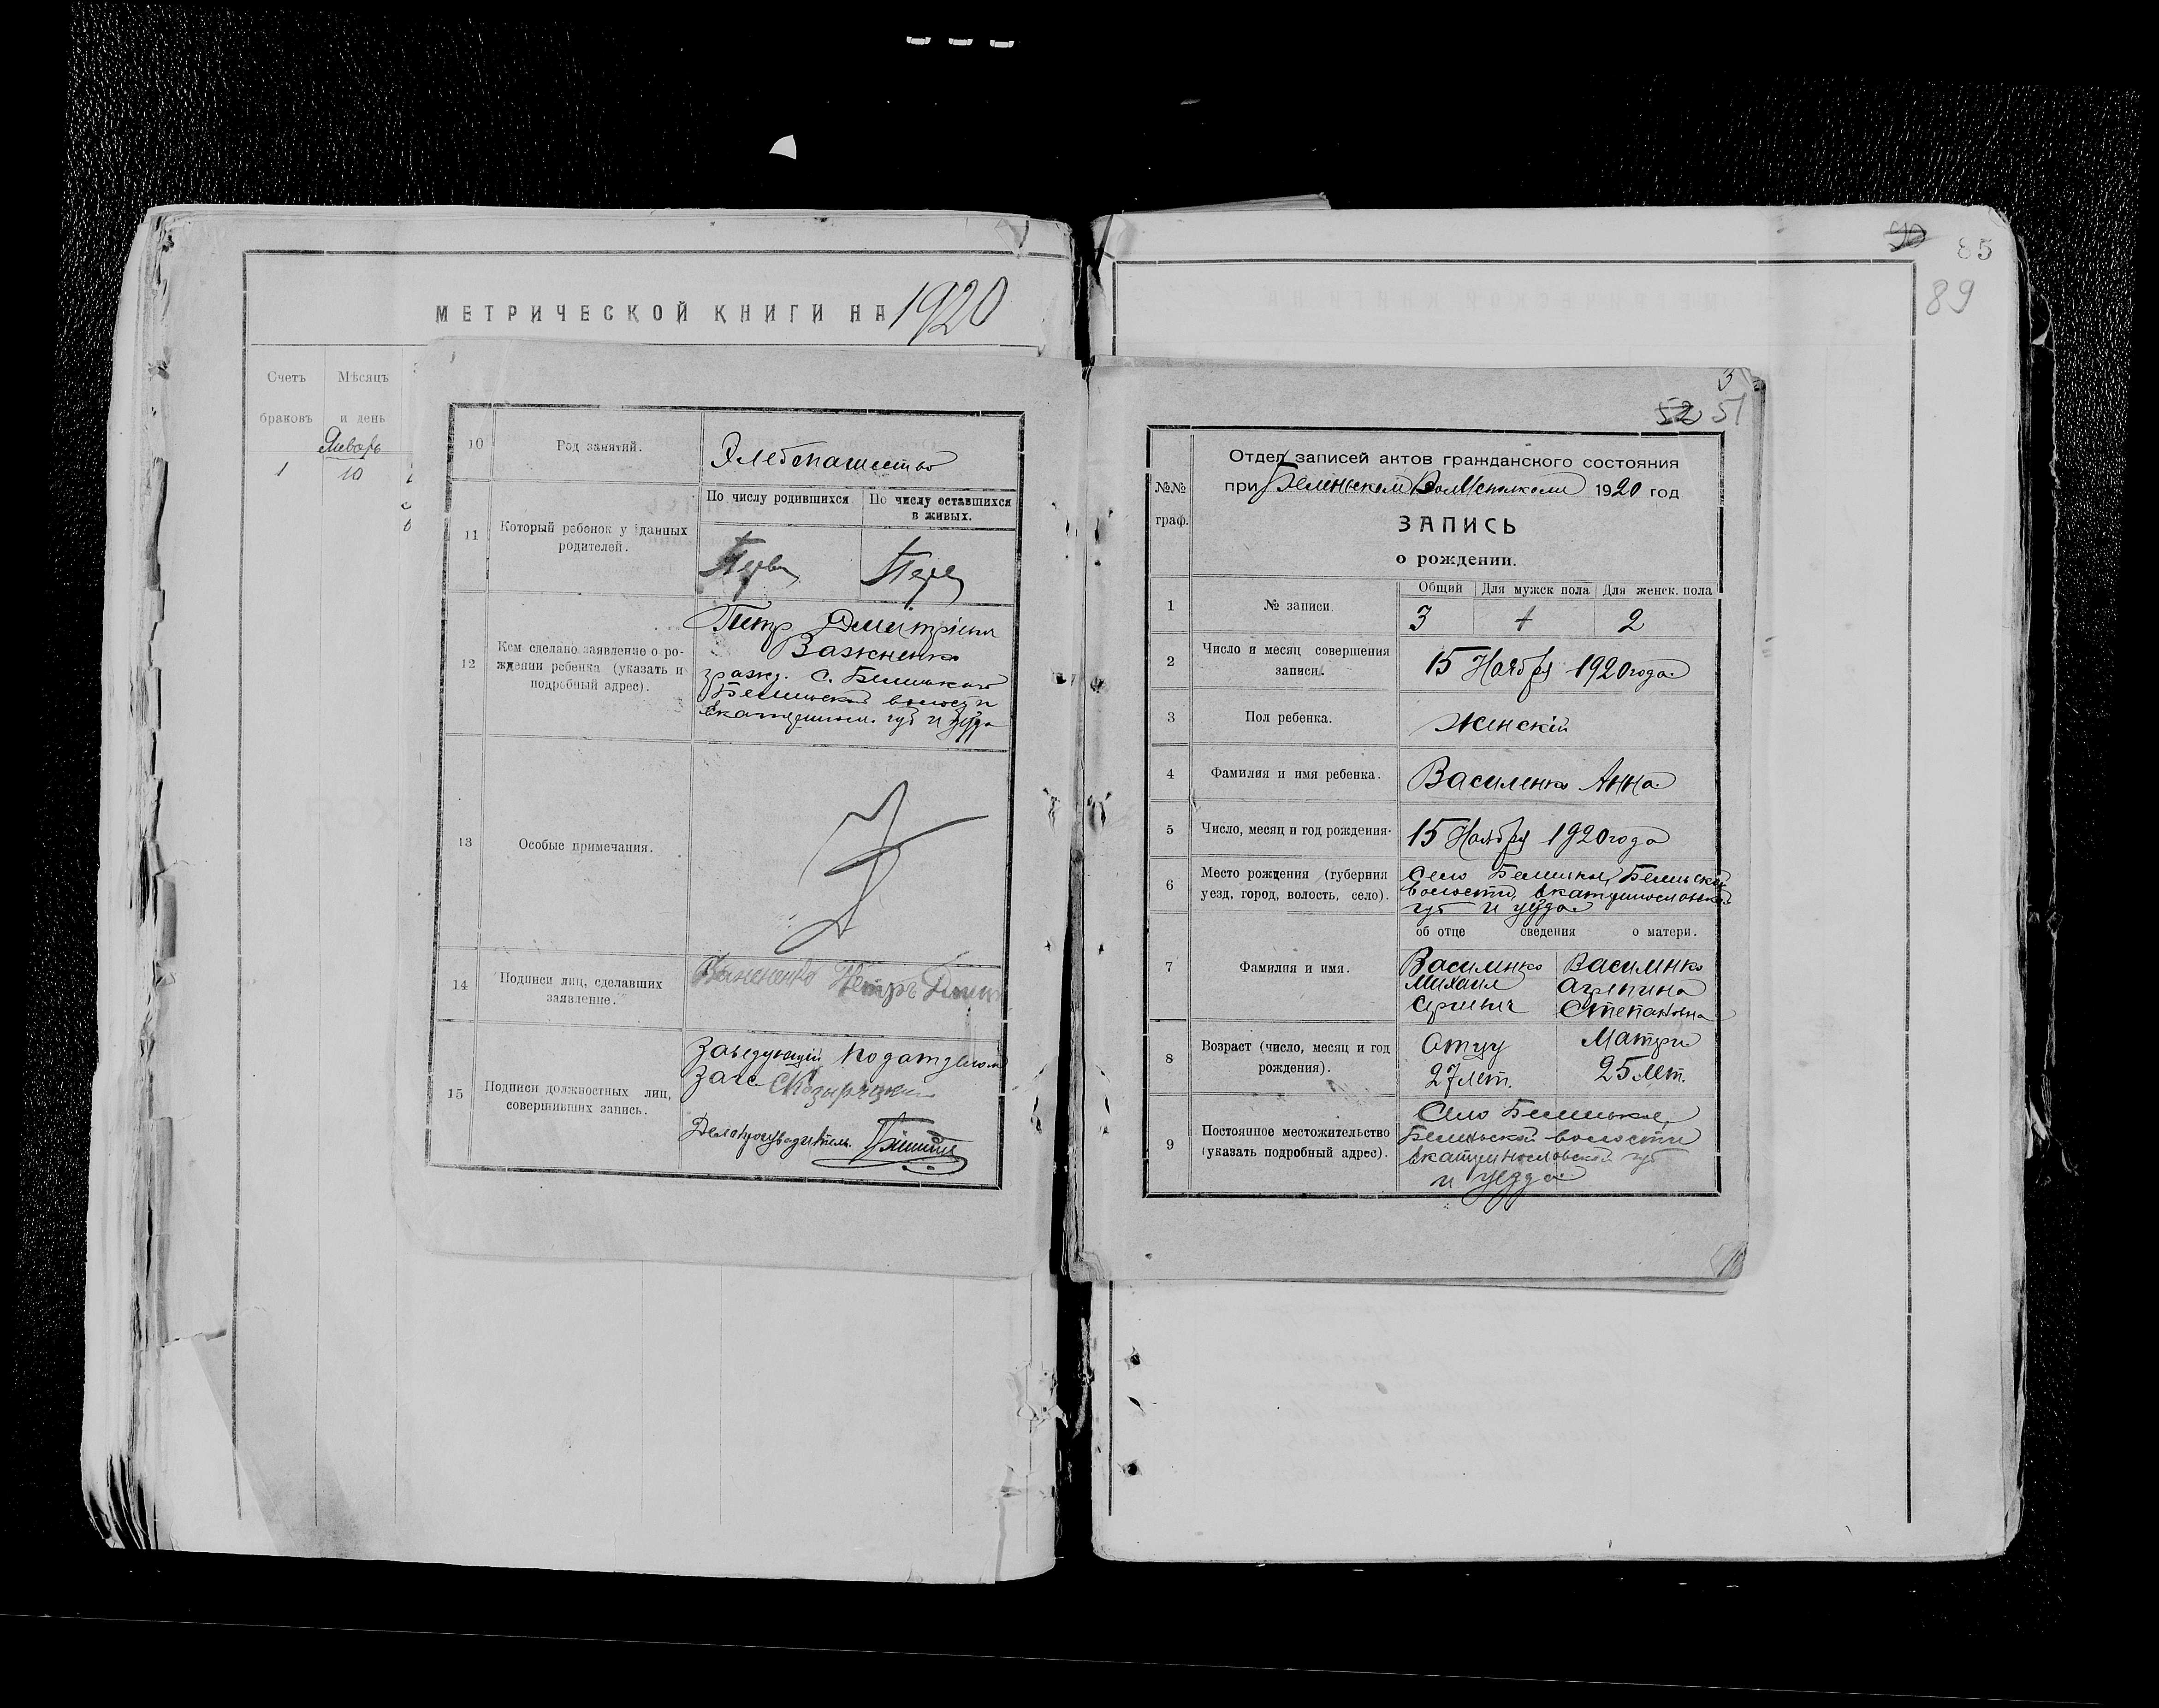 МЕТРИЧЕСКОЙ КНИГИ НА 1920
Счетъ
браковъ
Мѣсяцъ
и день
Январь
1
10
10
Род занятий.
Хлебопашество
11
Который ребенок у данных
родителей.
По числу родившихся
По числу оставшихся
в живых.
Перв
12
Кем сделано заявление о ро-
ждении ребенка (указать и
подробный адрес).
Петр Дмитриевич
Важненко
гражд. с. Беленького
Беленьской волости
Екатеринослав. губ и уезда
13
Особые примечания.
14
Подписи лиц, сделавших
заявление.
Важненко Петръ
15
Подписи должностных лиц,
совершивших запись.
Заведующий подотделом
Загс
Делопроизводитель
90
85
89
3
52 51
Отдел записей актов гражданского состояния
при Беленьском Волисполкоме 1920 год
№№
граф.
ЗАПИСЬ
о рождении.
1
№ записи.
Общий
Для мужск пола
Для женск. пола
3
+
2
2
Число и месяц совершения
записи.
15 Ноября 1920 года
3
Пол ребенка.
Женскій
4
Фамилия и имя ребенка.
Василенко Анна
5
Число, месяц и год рождения.
15 Ноября 1920 года
6
Место рождения (губерния
уезд, город, волость, село).
Село Беленькое, Беленьской
волости, Екатеринославской
губ и уезда
об отце сведения о матери.
7
Фамилия и имя.
Василенко
Михаил
Сергиевич
Василенко
Агрипина
Степановна
8
Возраст (число, месяц и год
рождения).
Отцу
27 лет.
Матери
25 лет.
9
Постоянное местожительство
(указать подробный адрес).
Село Беленькое,
Беленьской волости
Екатеринославской губ
и уезда